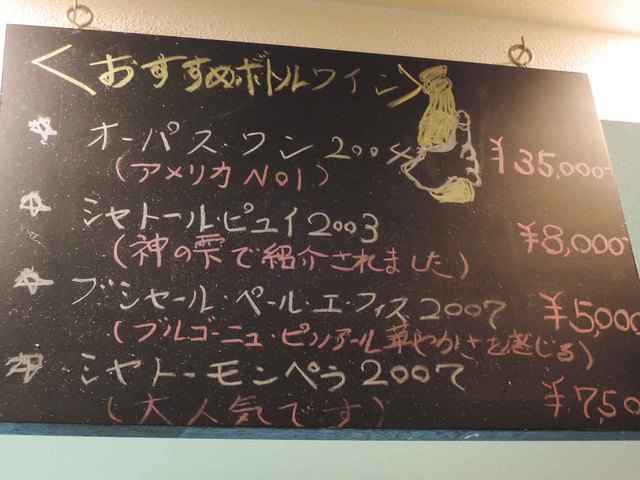 <おすすめボトルワイン>
☆ オーパス・ワン 2004 ¥35,000-
(アメリカ NO1)
☆ シャトール・ピュイ 2003 ¥8,000-
(神の雫で紹介されました)
☆ ブシャール・ペール・エ・フィス 2007 ¥5,000
(ブルゴーニュ・ピノノアール 華やかさを感じる)
☆ シャトーモンペラ 2007 ¥7,50
(大人気です)